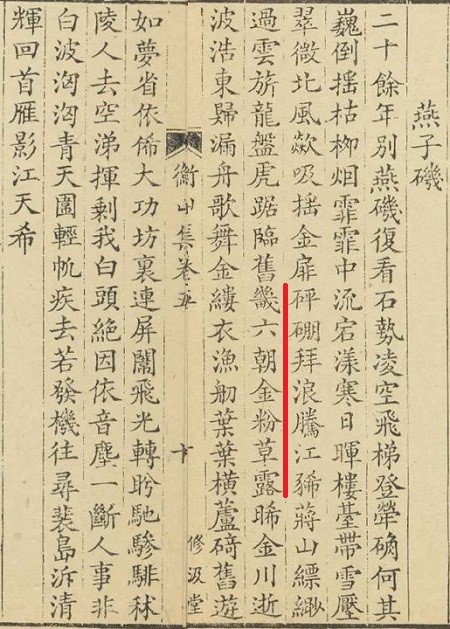 燕子磯
二十餘年別燕磯復看石勢凌空飛梯登犖确何其
巍倒搖枯柳烟霏霏中流宕漾寒日暉樓臺帶雪壓
翠微北風歘吸搖金扉砰硼拜浪騰江豨蔣山縹緲
過雲旂龍盤虎踞臨舊畿六朝金粉草露晞金川逝
波浩東歸漏舟歌舞金縷衣漁舠葉葉橫蘆碕舊遊
衡山集卷五 十 修汲堂
如夢省依俙大功坊裏連屏闈飛光轉盻馳驂騑秣
陵人去空涕揮剩我白頭絶因依音塵一斷人事非
白波洶洶青天圍輕帆疾去若發機往尋裴島泝清
輝回首雁影江天希